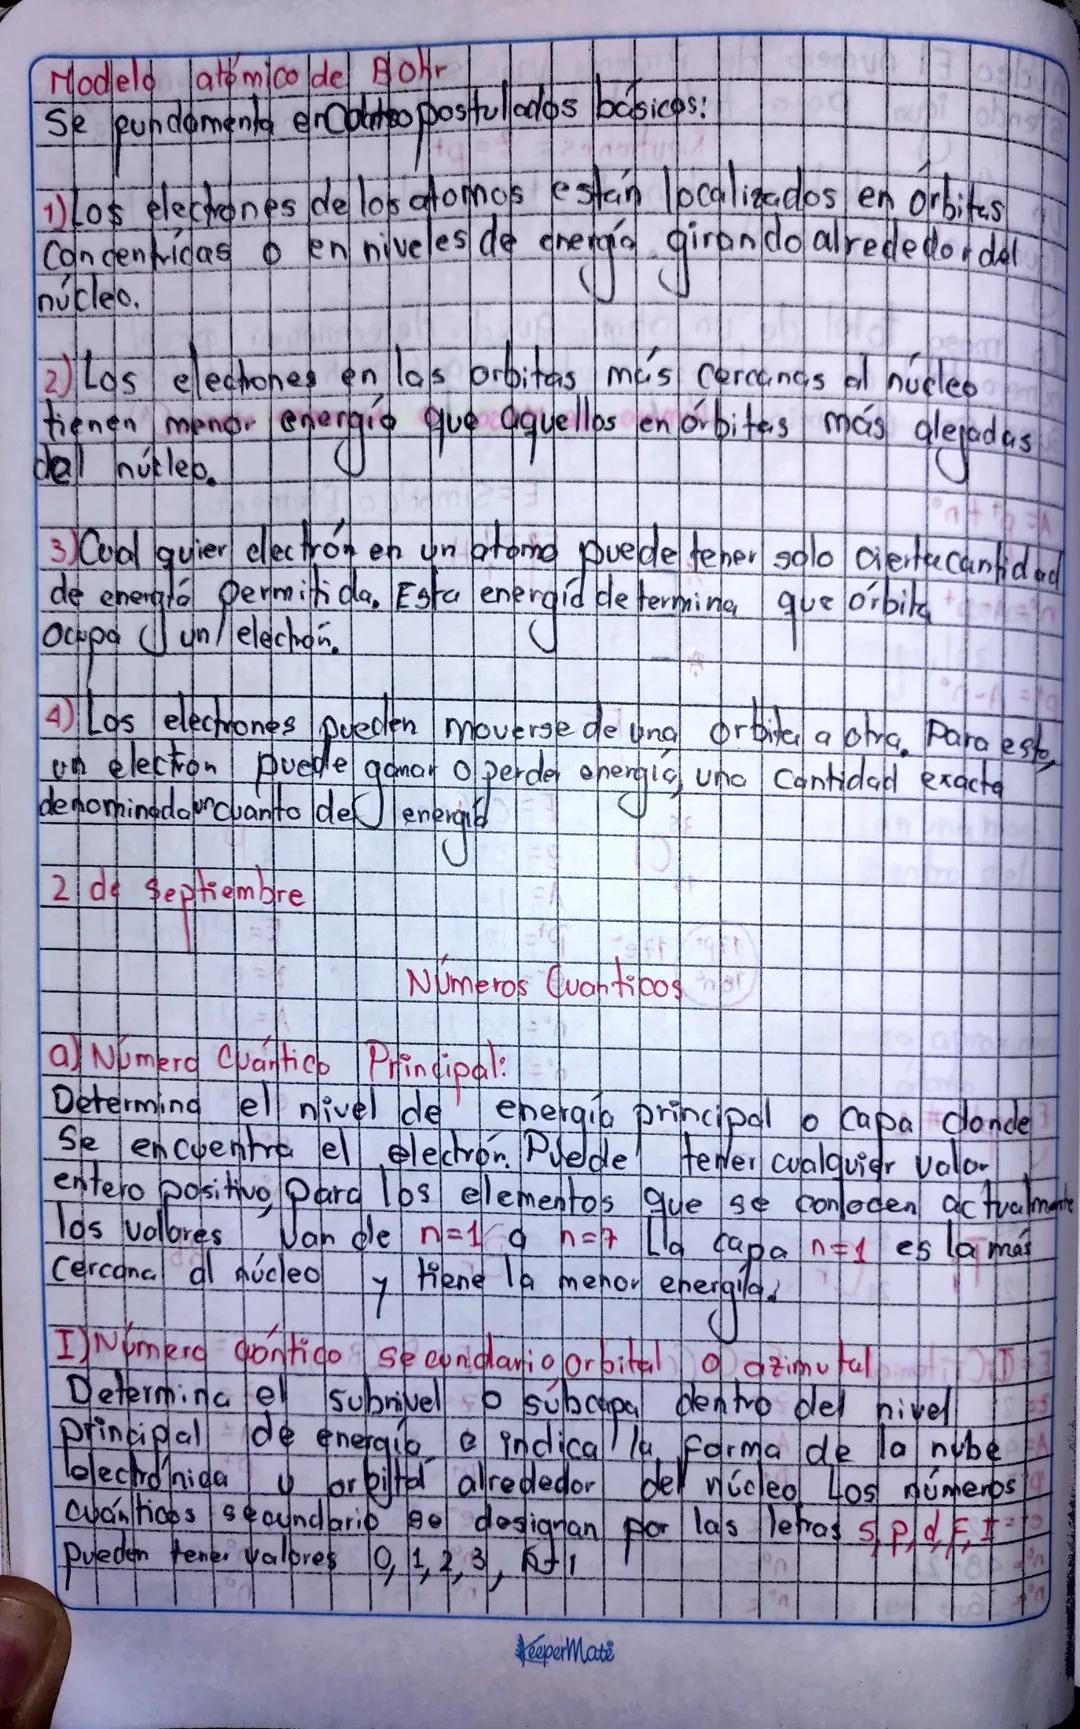 Modelo atómico de Bohr
Se fundamenta en cuatro postulados básicos:
1) Los electrones de los atomos están localizados en órbitas
concentricas o en niveles de energía girando alrededor del
núcleo.
2) Los electrones en las orbitas más cercanas al nucleo
tienen menor energía que aquellos en órbitas más alejadas
del núcleo.
3) Cualquier electrón en un atomo puede tener solo cierta cantidad
de energía permitida. Esta energía determina que órbita
ocupa un electrón.
4) Los electrones pueden moverse de una orbita a otra. Para esto,
un electrón puede ganar o perder energía, una cantidad exacta
denominada un cuanto de energía
2 de septiembre
Números Cuanticos
a) Número Cuántico Principal:
Determina el nivel de energía principal o capa donde
se encuentra el electrón. Puede tener cualquier valor
entero positivo, para los elementos que se conocen actualmente
los valores van de n=1 a n=7 La capa n=1 es la más
cercana al núcleo y tiene la menor energía.
I) Número cuántico secundario orbital o azimutal
Determina el subnivel o súbcapa dentro del nivel
principal de energía e indica la forma de la nube
electrónica u orbital alrededor del núcleo Los números
cuánticos secundario se designan por las letras s, p, d, f, I
pueden tener valores 0, 1, 2, 3,
KeeperMate